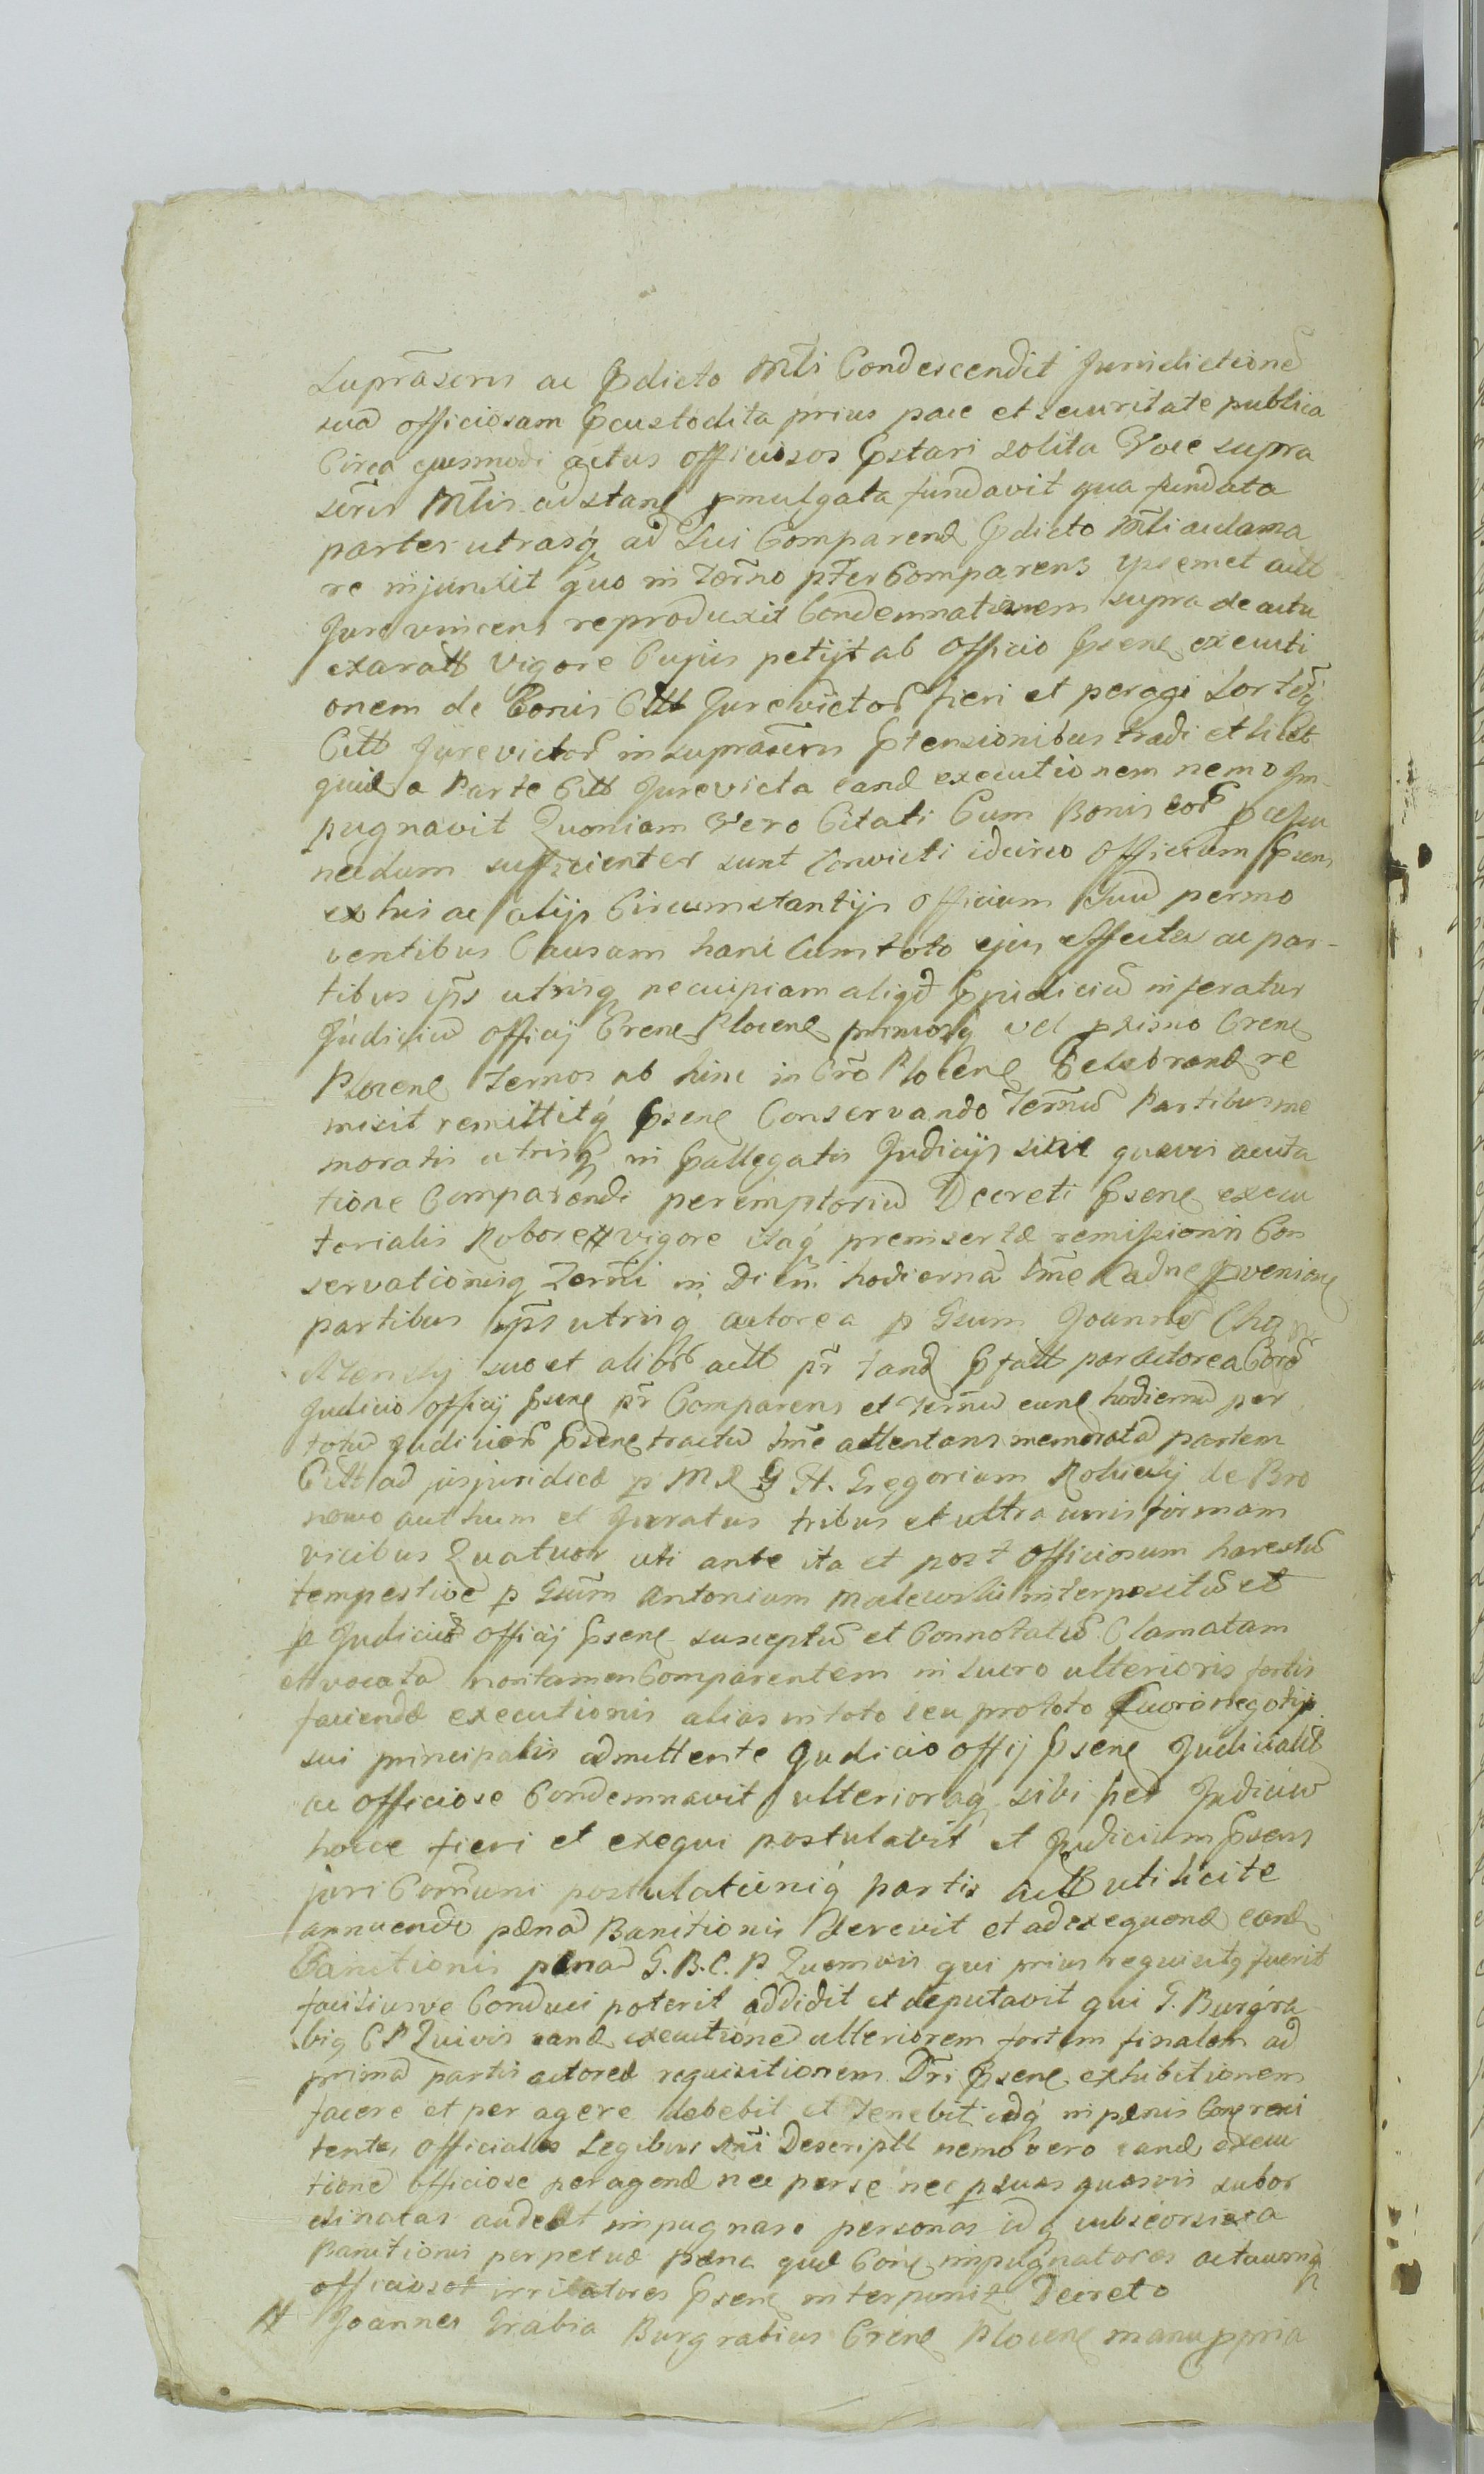 suprascris ac pdicto Mli Condescendit Jurisdictione
sua officiosam pcustodita prius pace et securitate publica
Circa ejusmodi actus officiosos pstari solita Voce supra
scris Mlis adstanc pmulgata fundavit qua fundata
partes utrasq ad sui Comparend pdicto Mli acclama
re injunxit quo in Termno pter Comparens ipsemet actt
Jure vincens reproduxit Condemnationem supra de actu
exaratt Vigore Cujus petijt ab Officio psene executi
onem de Bonis Citt Jurevictor fieri et peragi
Citt Jurevictor in suprascris ptensionibus tradi et
quid a Parte Citt Jurevicta eand executionem nemo Im-
pugnavit Quoniam Vero Citati Cum Bonis eor
necdum sufficienter sunt Convicti idcirco Officium psens
ex his ac alijs Circumstantijs officium suu permo
ventibus Causam hanc Cum toto ejus effectu ac par-
tibus ips utrisq ne cuipiam aliqd pjudiciu inferatur
Judiciu officij Crene Plocene primosq vel primo Crene
Plocene Termos ab hinc in Cro Plocene Celebrand re
misit remittitq psene Conservando Termnu Partibus me
moratis utrisq in pallegatis Judicijs sine quavis acita
tione Comparendi peremptoriu Decreti psene execu
torialis Robore # vigore itaq premisertæ remissionis Con
servationisq Termni in Diem hodierna tme Cadne pveniene
partibus ips utrisq actorea p Gsum Joanne
suo et alior actt pr tand pfatt par actorea Cora
Judicio officij psene pr Comparens et Termnu eune hodiernu per
totu Judicior psene tractu tme attentans memorata partem
Citt ad jusjuridice p M R G St. Gregorium Rohicky de Bro
nowo authum et Juratus tribus et ultra iuris formam
vicibus Quatuor uti ante ita et post Officiosum harestu
tempestive p Gsum Antonium interpositu et
p Judiciu officij psene susceptu et Connotatu Clamatam
et vocata non tamen Comparentem in lucro ulterioris fortis
faciendæ executionis alias in toto seu pro toto lucro negotij
sui principalis admittente Judicio offij psene Judicialit
ac officiose Condemnavit ulterioraq sibi per Judiciu
hocce fieri et exequi postulavit et Judicium psens
juri Comuni postulationiq partis actt uti licite
annuendo pæna Banitionis decrevit et ad exequend eand
Banitionis pæna G. B. C. P Quemvis qui prius requisitq fuerit
faciliusve Conduci poterit addidit et deputavit qui G. Burgra
big C P Quivis eand executione ulteriorem fortem finalem ad
prima partis actoreæ requisitionem Dri psene exhibitionem
facere et per agere debebit et tenebit idq in penis Conc reni
tentes Officiales Legibus Rni Descriptt nemo vero eand execu
tione officiose peragend nec per se nec p suas quasvis subor
dinatas audeat impugnare personas idq sub seorsiva
Banitionis perpetuæ pæna quæ Conc impugnatores actuumq
officiosor irritatores psene interponit Decreto
# Joannes Grabia Burgrabius Crene Plocene manu ppria